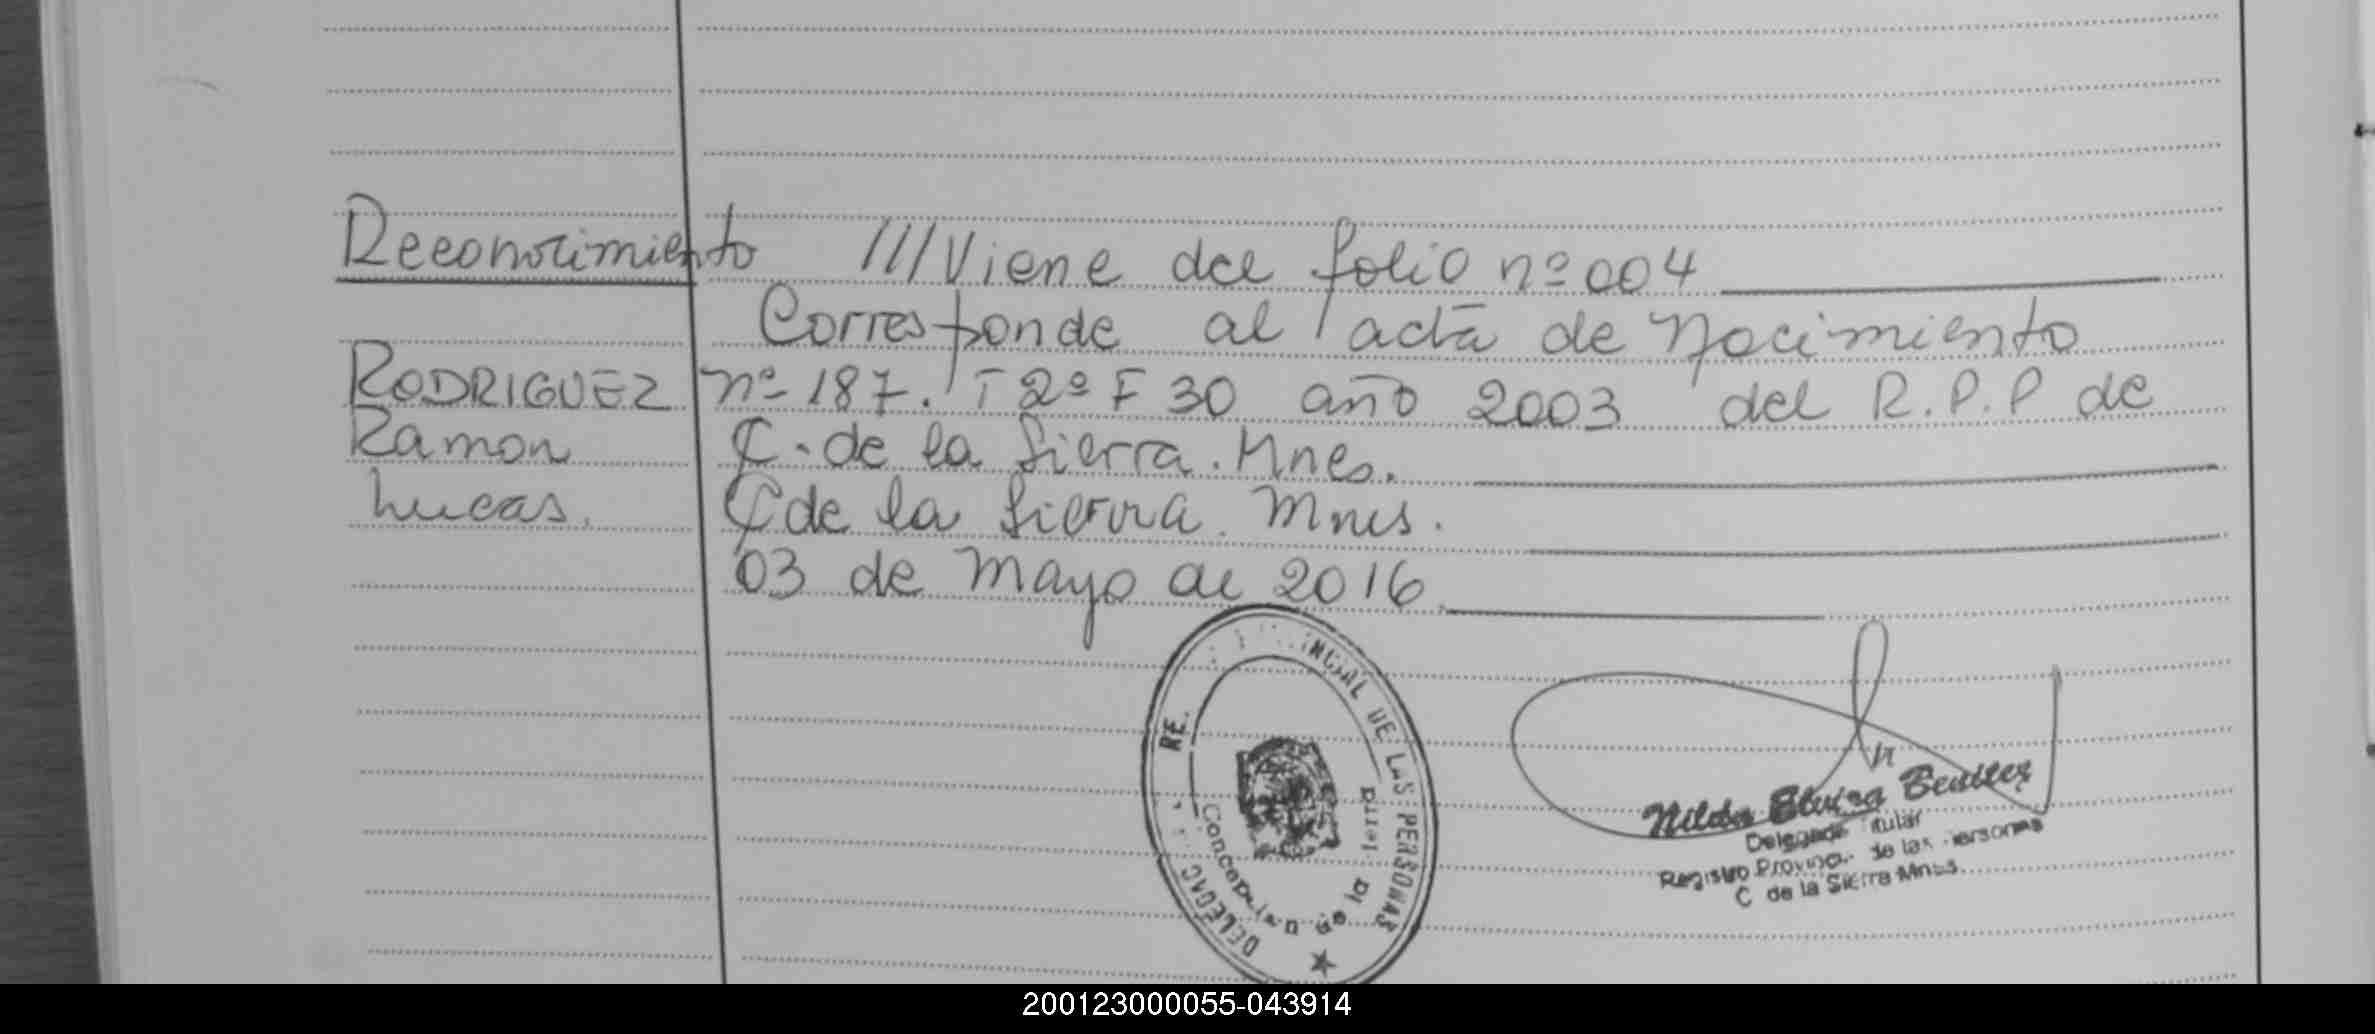 Reconocimiento ///Viene del folio nº 004
Corresponde al acta de Nacimiento
RODRIGUEZ nº 187. T 2º F 30 año 2003 del R.P.P de
Ramon C. de la Sierra. Mnes.
Lucas. C de la Sierra. Mnes.
03 de Mayo de 2016.
DE LAS PERSONAS
Concepcion de la Sierra
Nilda Elvira Benitez
Delegada Titular
Registro Provincial de las Personas
C de la Sierra Mnes.
200123000055-043914